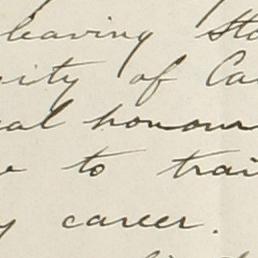 leaving
sity of Ca
honour
to trai
career.